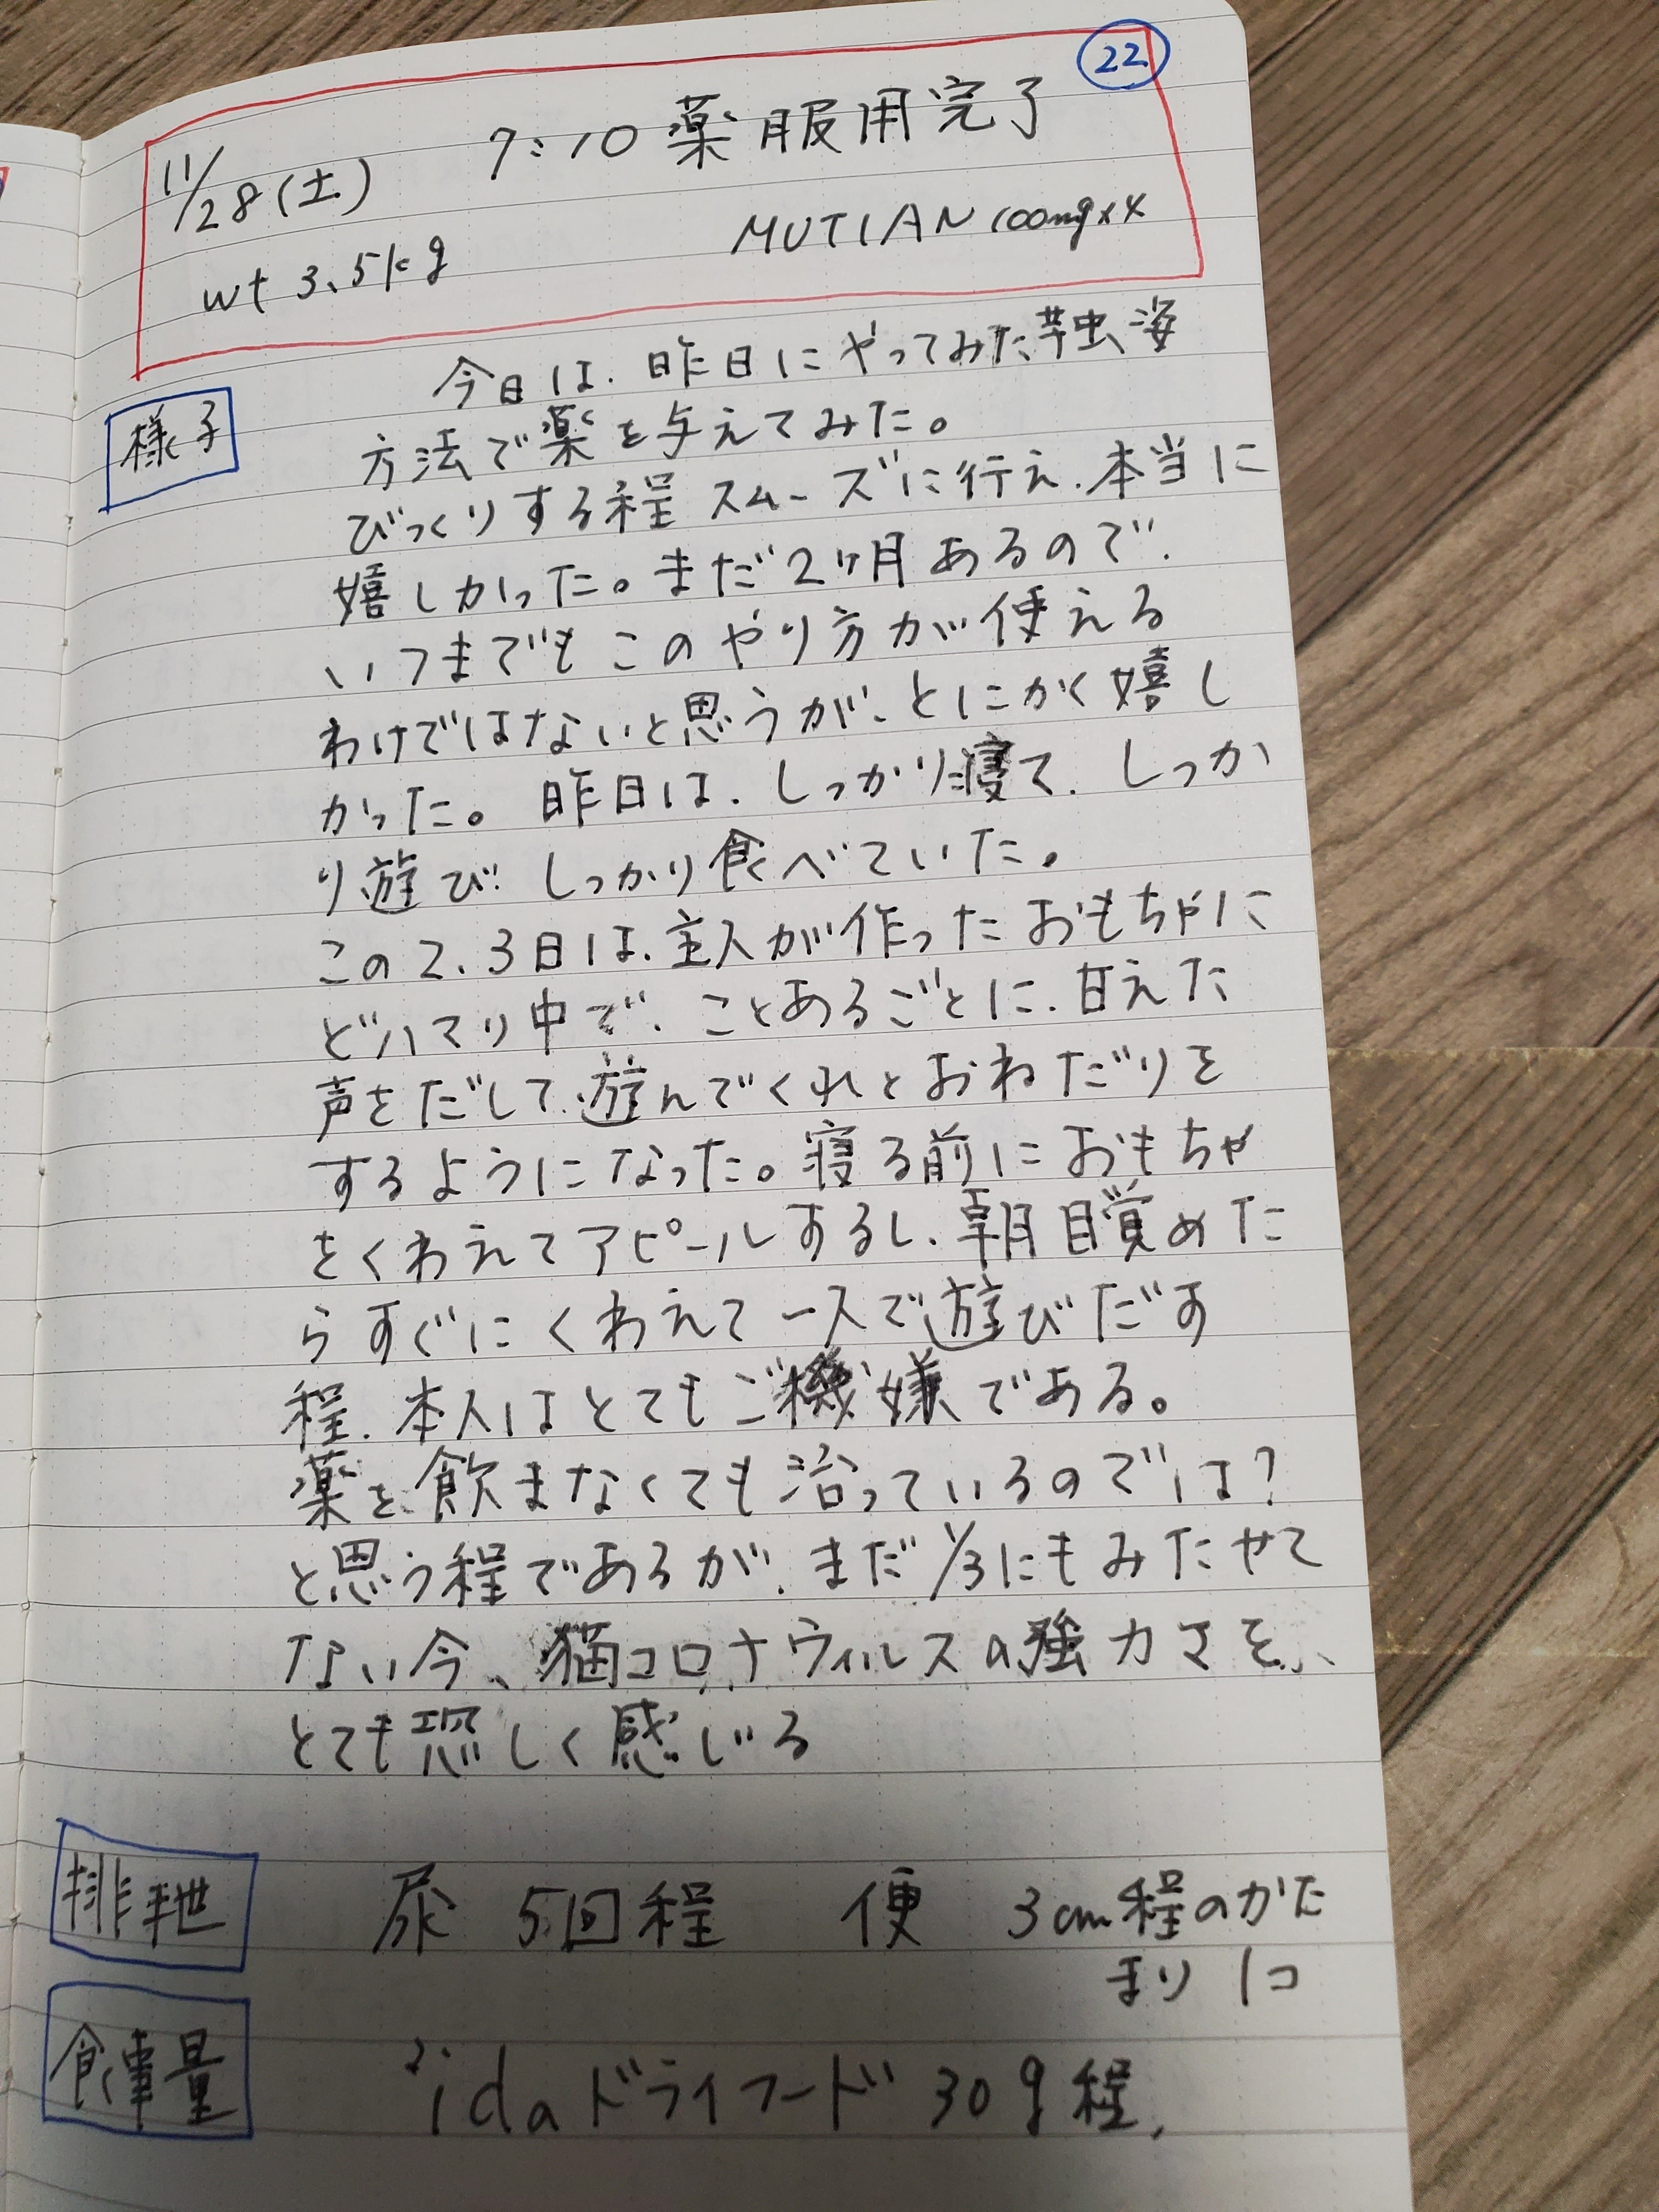 22
7:10 薬服用完了
11/28(土)
MUTIAN 100mg×4
wt 3.5kg
様子
今日は、昨日にやってみた
方法で薬を与えてみた。
びっくりする程スムーズに行え、本当に
嬉しかった。まだ2ヶ月あるので、
いつまでもこのやり方が使える
わけではないと思うが、とにかく嬉し
かった。昨日は、しっかり寝て、しっか
り遊び、しっかり食べていた。
この2、3日は、主人が作ったおもちゃに
どハマり中で、ことあるごとに、甘えた
声をだして、遊んでくれとおねだりを
するようになった。寝る前におもちゃ
をくわえてアピールするし、朝目覚めた
らすぐにくわえて一人で遊びだす
程、本人はとてもご機嫌である。
薬を飲まなくても治っているのでは?
と思う程であるが、まだ1/3にもみたせて
ない今、猫コロナウィルスの強力さを、
とても恐しく感じる
排泄
尿 5回程 便 3cm程のかた
まり 1コ
食事量
idaドライフード 30g程、